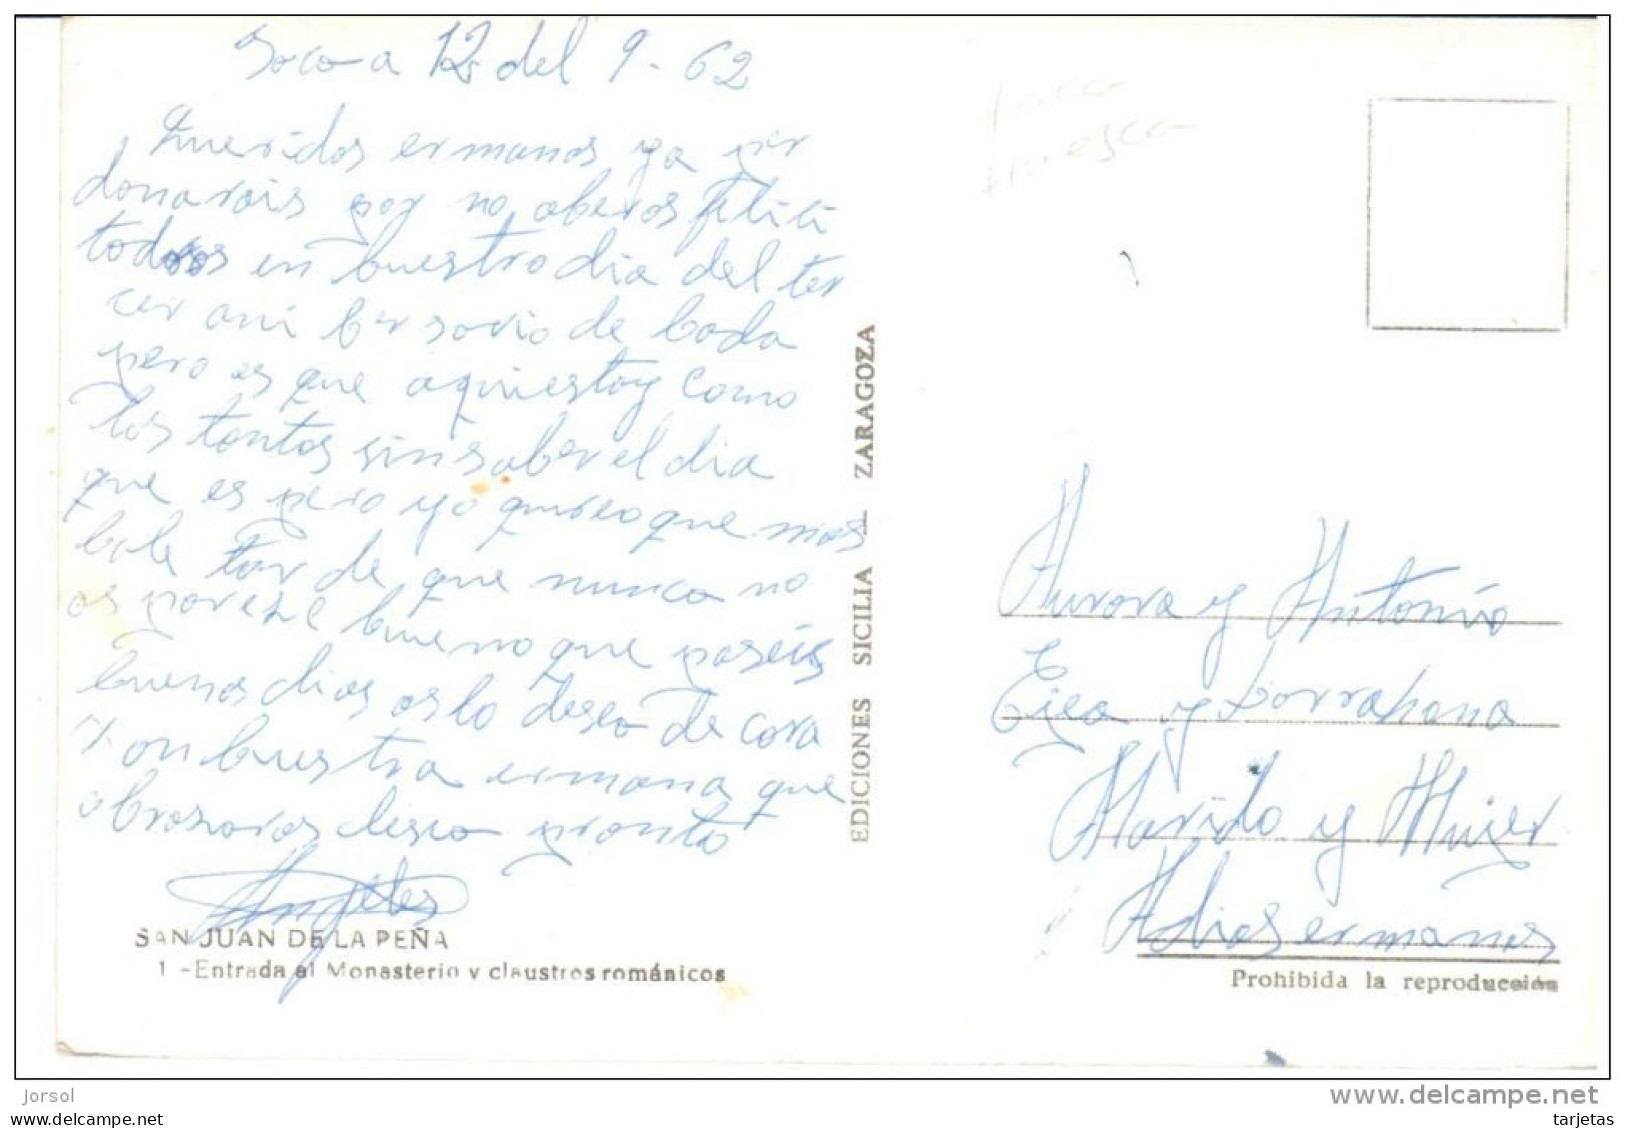 12 del 9-62
Queridos ermanos ya per
donarais por no aberos feliti
todos en buestro dia del ter
cer ani bersario de boda
pero es que aqui estoy como
los tontos sin saber el dia
que es pero yo quireo que mas
bale tar de que nunca no
os pareze bueno que paseis
buenos dias os lo deseo de cora
buestra ermana que
abrazaros desea pronto
Angeles
SAN JUAN DE LA PEÑA
1 - Entrada al Monasterio y claustros románicos
EDICIONES SICILIA — ZARAGOZA
Huesca
Aurora y Antonio
y
Marido y Mujer
Adios ermanos
Prohibida la reproducción
Jorsol
www.delcampe.net
my favourite collection
tarjetas